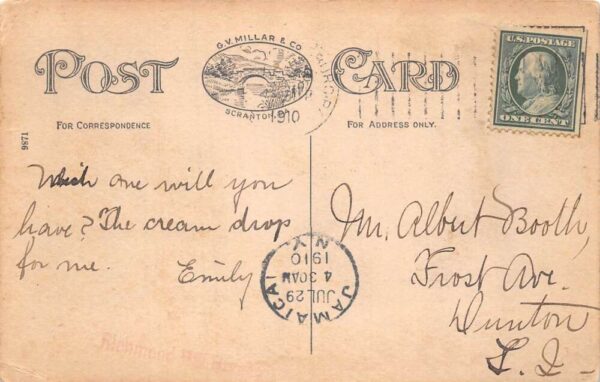 POST CARD
G.V. MILLAR & CO
SCRANTON, PA
1910
U.S. POSTAGE
ONE CENT
FOR CORRESPONDENCE
FOR ADDRESS ONLY.
9871
Which one will you
have? The cream drop
for me.
Emily
JAMAICA
JUL 29
4 30 AM
1910
N.Y.
Mr. Albert Booth,
Frost Ave.
Dunton
L. I.
Richmond